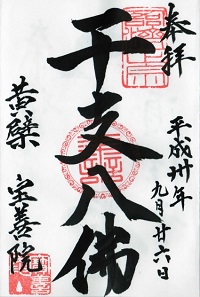 奉拝
平成卅年
九月廿六日
干支八佛
黄檗
宝善院